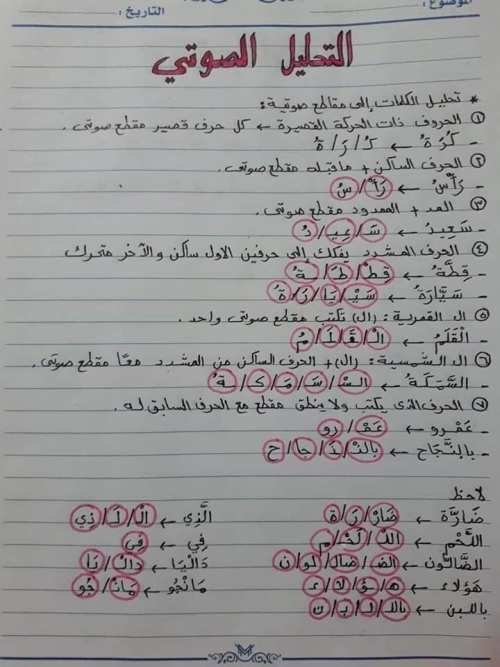 الموضوع:
التاريخ:
التحليل الصوتي
* تحليل الكلمات إلى مقاطع صوتية:
① الحروف ذات الحركة القصيرة ← كل حرف قصير مقطع صوتي.
- كُرَةٌ ← كُـ / رَ / ةٌ
② الحرف الساكن + ماقبله مقطع صوتي.
- رَأْسٌ ← رَأْ / سٌ
③ المد + الممدود مقطع صوتي.
- سَعِيدٌ ← سَـ / عِيـ / دٌ
④ الحرف المشدد يفكك إلى حرفين الاول ساكن والآخر متحرك
- قِطَّةٌ ← قِطْ / طَـ / ـةٌ
- سَيَّارَةٌ ← سَيْـ / يَا / رَ / ةٌ
⑤ ال القمرية: (ال) تكتب مقطع صوتي واحد.
- الْقَلَمُ ← الْـ / قَـ / لَـ / مُ
⑥ ال الشمسية: (ال) + الحرف الساكن من المشدد معًا مقطع صوتي.
- السَّمَكَةُ ← السْـ / سَـ / مَـ / كَـ / ـةُ
⑦ الحرف الذي يكتب ولا ينطق مقطع مع الحرف السابق له.
- عَمْرو ← عَمْـ / رو
- بِالنَّجَاحِ ← بِالنْـ / نَـ / جَا / حِ
لاحظ
ضَارَّة ← ضَارْ / رَ / ة
الَّذِي ← الْـ / لَـ / ذِي
اللَّحْم ← اللْـ / لَحْـ / م
فِي ← فِي
الضَّالُّون ← الضـ / ضَالـ / لُو / ن
دَالْيَا ← دَالْـ / يَا
هَؤُلَاءِ ← هـَ / ؤُ / لَا / ءِ
مَانْجُو ← مَانْـ / جُو
باللبن ← باللـ / لـ / بـ / ن